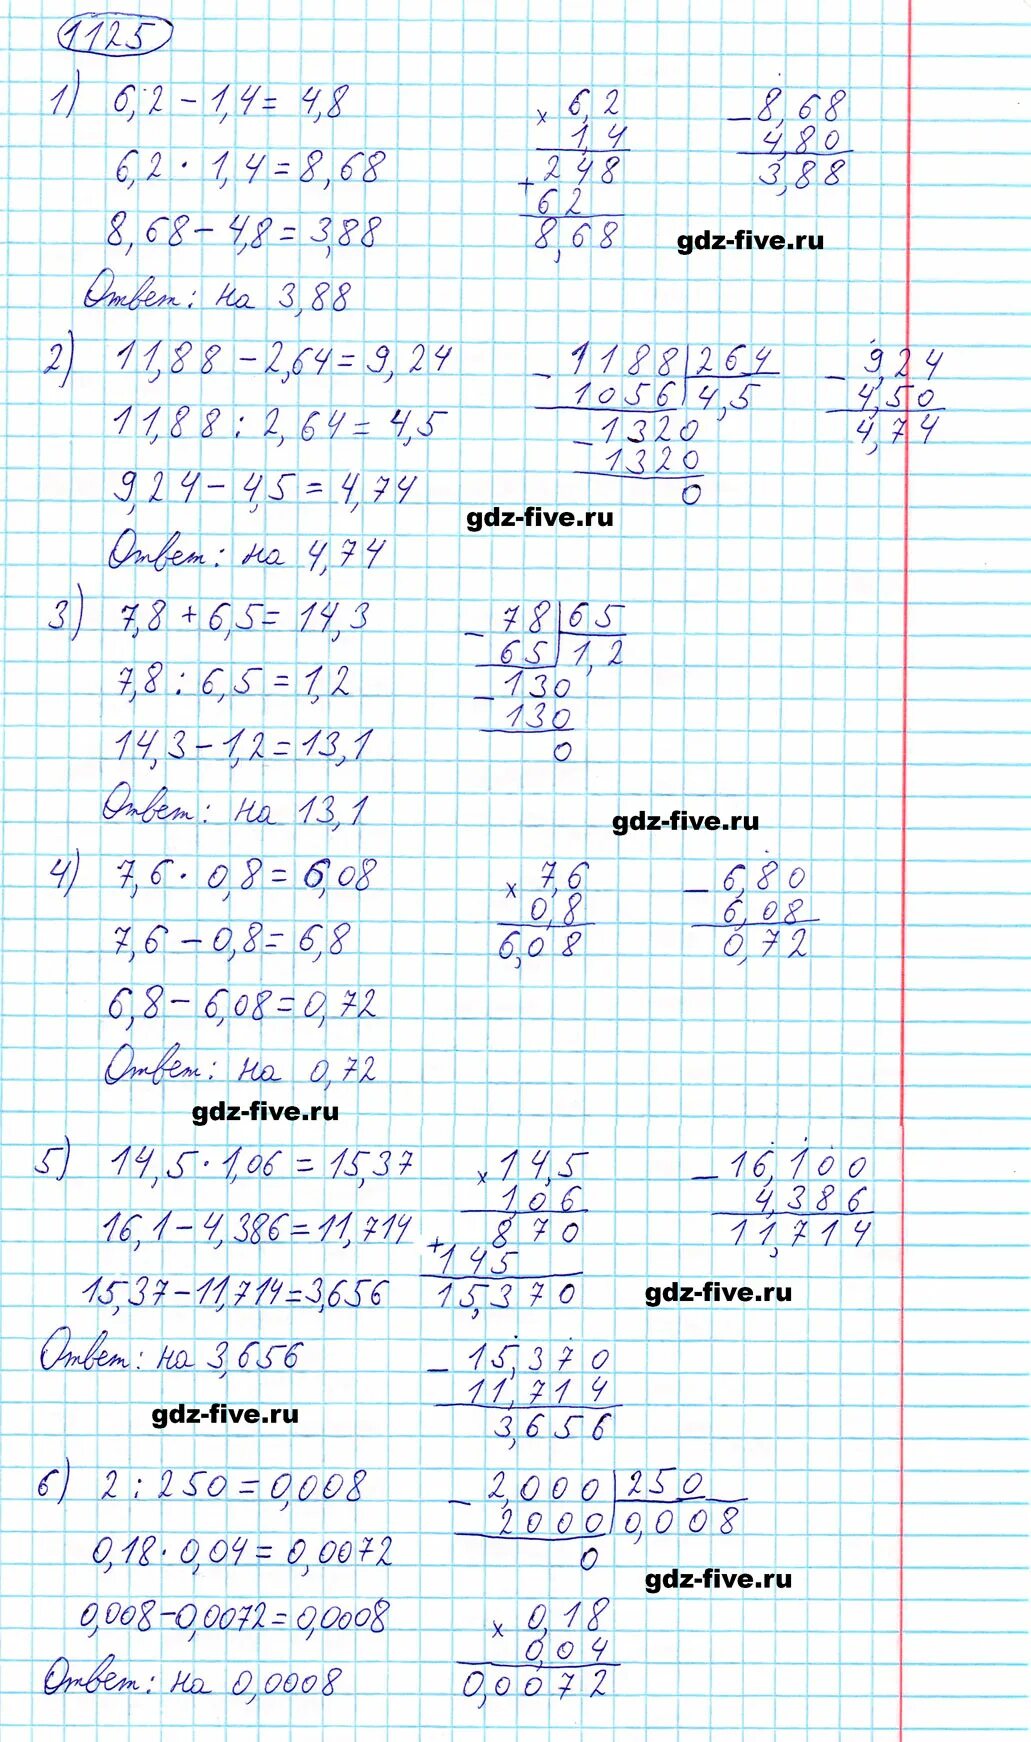 1125
1) 6,2 - 1,4 = 4,8
6,2 · 1,4 = 8,68
8,68 - 4,8 = 3,88
Ответ: на 3,88
× 6,2
1,4
+ 248
62
8,68
- 8,68
4,80
3,88
gdz-five.ru
2) 11,88 - 2,64 = 9,24
11,88 : 2,64 = 4,5
9,24 - 4,5 = 4,74
Ответ: на 4,74
- 1188 | 264
1056 | 4,5
- 1320
1320
0
- 9,24
4,50
4,74
gdz-five.ru
3) 7,8 + 6,5 = 14,3
7,8 : 6,5 = 1,2
14,3 - 1,2 = 13,1
Ответ: на 13,1
- 78 | 65
65 | 1,2
- 130
130
0
gdz-five.ru
4) 7,6 · 0,8 = 6,08
7,6 - 0,8 = 6,8
6,8 - 6,08 = 0,72
Ответ: на 0,72
× 7,6
0,8
6,08
- 6,80
6,08
0,72
gdz-five.ru
5) 14,5 · 1,06 = 15,37
16,1 - 4,386 = 11,714
15,37 - 11,714 = 3,656
Ответ: на 3,656
× 14,5
1,06
+ 870
145
15,370
- 16,100
4,386
11,714
gdz-five.ru
- 15,370
11,714
3,656
gdz-five.ru
6) 2 : 250 = 0,008
0,18 · 0,04 = 0,0072
0,008 - 0,0072 = 0,0008
Ответ: на 0,0008
- 2,000 | 250
2000 | 0,008
0
gdz-five.ru
× 0,18
0,04
0,0072